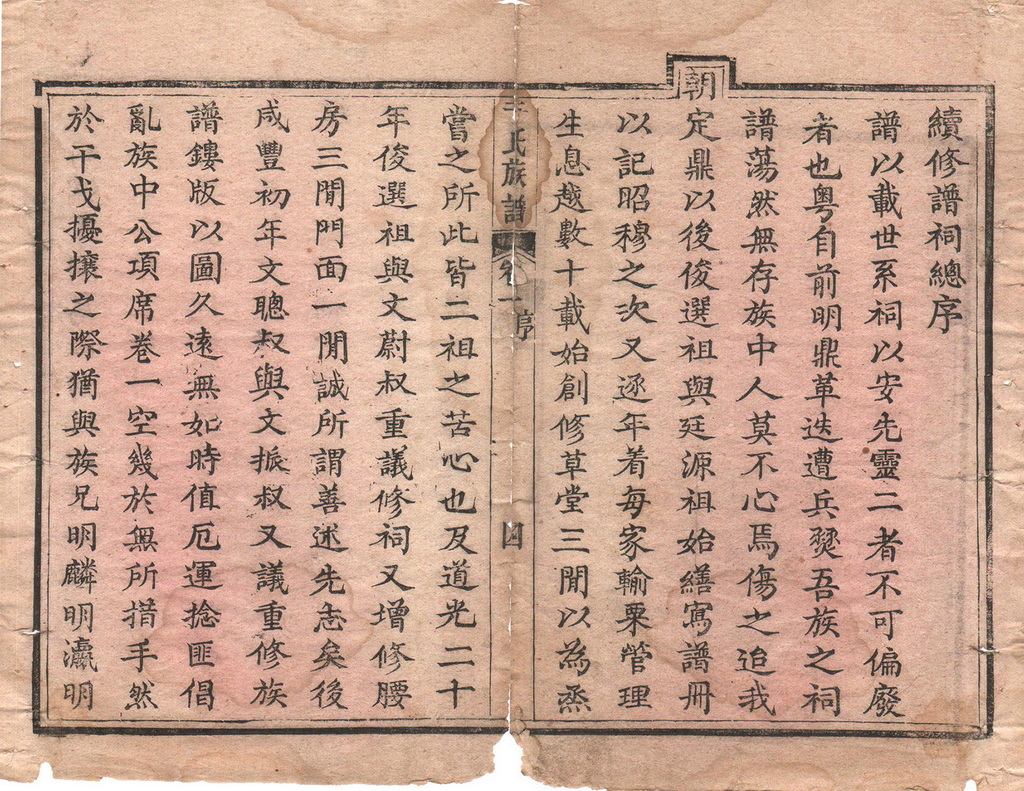 續修譜祠總序
譜以載世系祠以安先靈二者不可偏廢
者也粵自前明鼎革迭遭兵燹吾族之祠
譜蕩然無存族中人莫不心焉傷之迨我
朝定鼎以後俊選祖與廷源祖始繕寫譜冊
以記昭穆之次又逐年着每家輸粟管理
生息越數十載始創修草堂三間以為烝
氏族譜
卷一序
四
嘗之所此皆二祖之苦心也及道光二十
年俊選祖與文蔚叔重議修祠又增修腰
房三間門面一間誠所謂善述先志矣後
咸豐初年文聰叔與文振叔又議重修族
譜鏤版以圖久遠無如時值厄運捻匪倡
亂族中公項席卷一空幾於無所措手然
於干戈擾攘之際猶與族兄明麟明瀛明